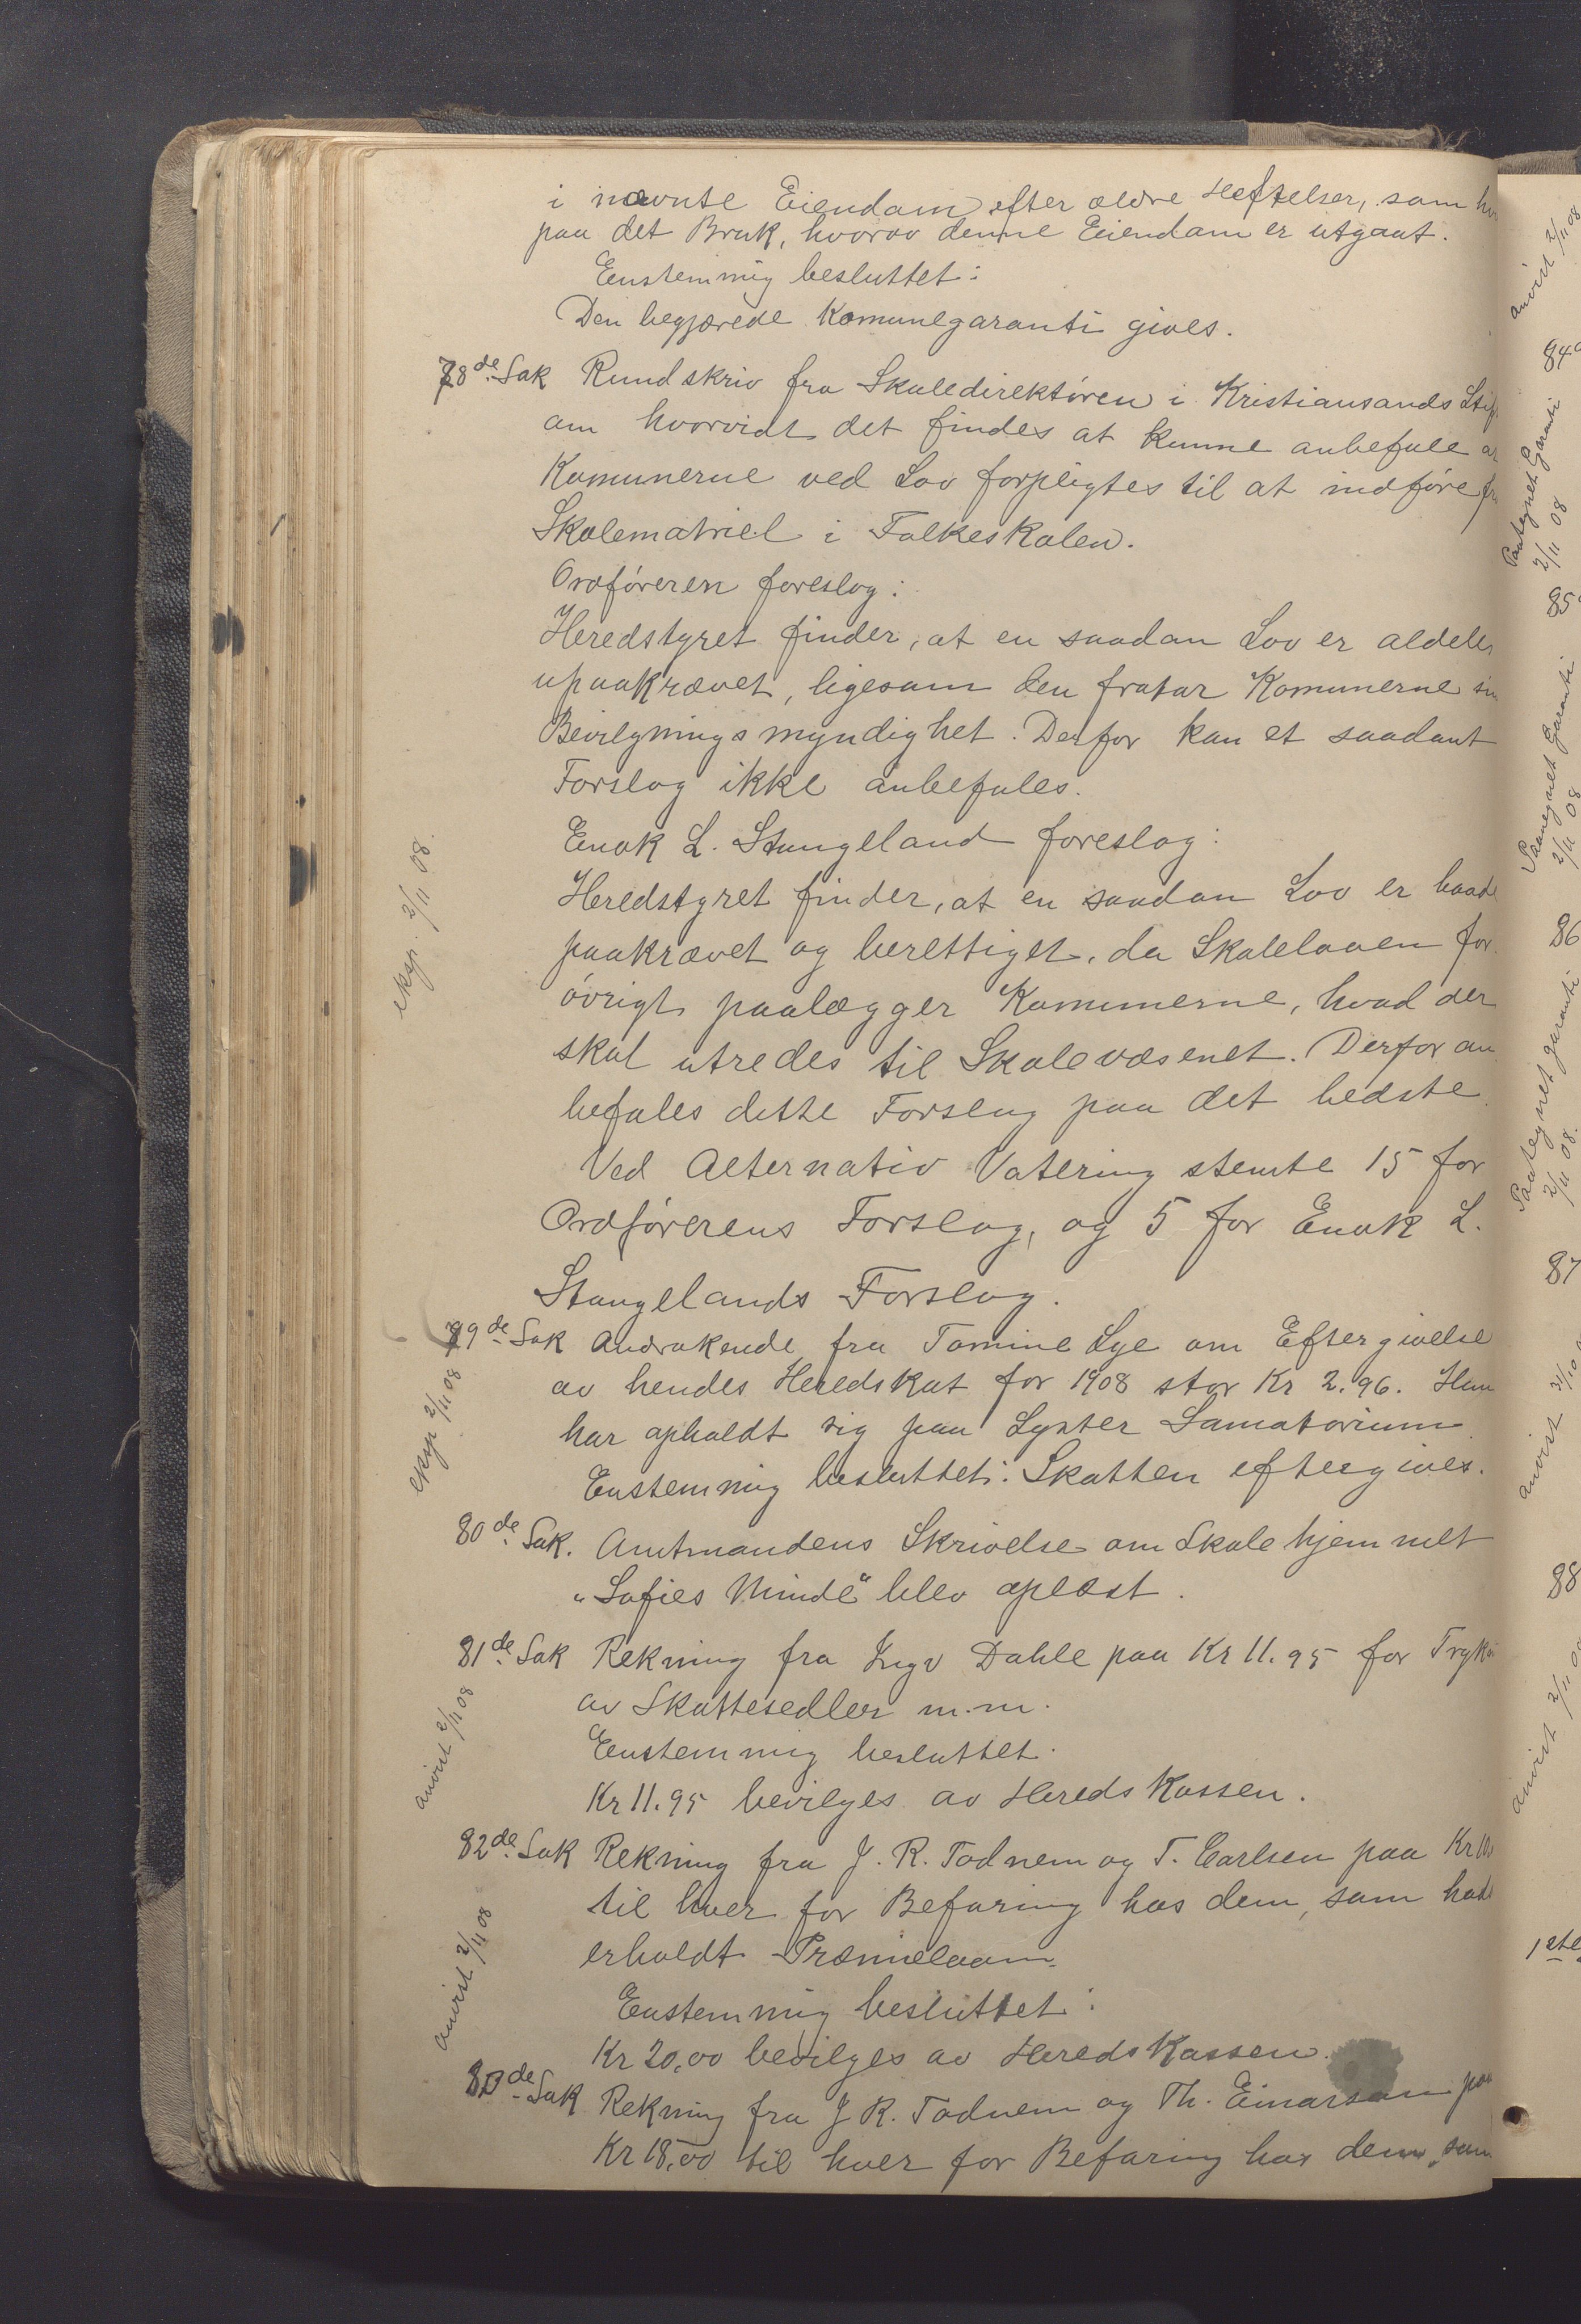 i nævnte Eiendam efter ældre Heftelser, som
paa det Bruk, hvorav denne Eiendam er utgaat.
Eenstemmig besluttet:
Den begjærede Komunegaranti gives.
78de Sak Rundskriv fra Skoledirektören i Kristiansands Stift
om hvorvidt det findes at kunne anbefale at
Komunerne ved Lov forpligtes til at indføre fri
Skolematriel i Folkeskolen.
Ordföreren foreslog:
Heredstyret finder, at en saadan Lov er aldeles
upaakrævet, ligesom den fratar Komunerne sin
Bevilgningsmyndighet. Derfor kan et saadant
Forslag ikke anbefales.
Enok L. Stangeland foreslog:
Heredstyret finder, at en saadan Lov er baade
paakrævet og berettiget, da Skoleloven for
övrigt paalægger Komunerne, hvad der
skal utredes til Skolevæsenet. Derfor an
befales dette Forslag paa det bedste.
Ved Alternativ Votering stemte 15 for
Ordförerens Forslag, og 5 for Enok L.
Stangelands Forslag.
ekyp. 2/11 08.
79de Sak Andrakende fra Tomine Lye om Eftergivelse
av hendes Heredskat for 1908 stor Kr 2.96. Hun
har opholdt sig paa Lyster Sanatorium
Enstemmig besluttet: Skatten eftergives.
eksp 2/11 08
80de Sak. Amtmandens Skrivelse om Skolehjemmet
"Sofies Minde" blev oplæst.
81de Sak Rekning fra Ingv Dahle paa Kr 11.95 for Tryk
av Skattesedler m.m.
Eenstemmig besluttet:
Kr 11.95 bevilges av Heredskassen.
anvist 2/11 08
82de Sak Rekning fra J. R. Todnem og T. Carlsen paa Kr 10
til hver for Befaring hos dem, som had
erholdt Præmielaan.
Enstemmig besluttet:
Kr 20,00 bevilges av Heredskassen.
anvist 2/11 08
83de Sak Rekning fra J R. Todnem og Th. Einarsson paa
Kr 18,00 til hver for Befaring hos dem, som
anvist 2/11 08
84
Paategnet Garanti
2/11 08
85
Paategnet Garanti
2/11 08
86
Paategnet garanti
2/11 08.
87
anvist 31/10
88
anvist 2/11 08
1ste